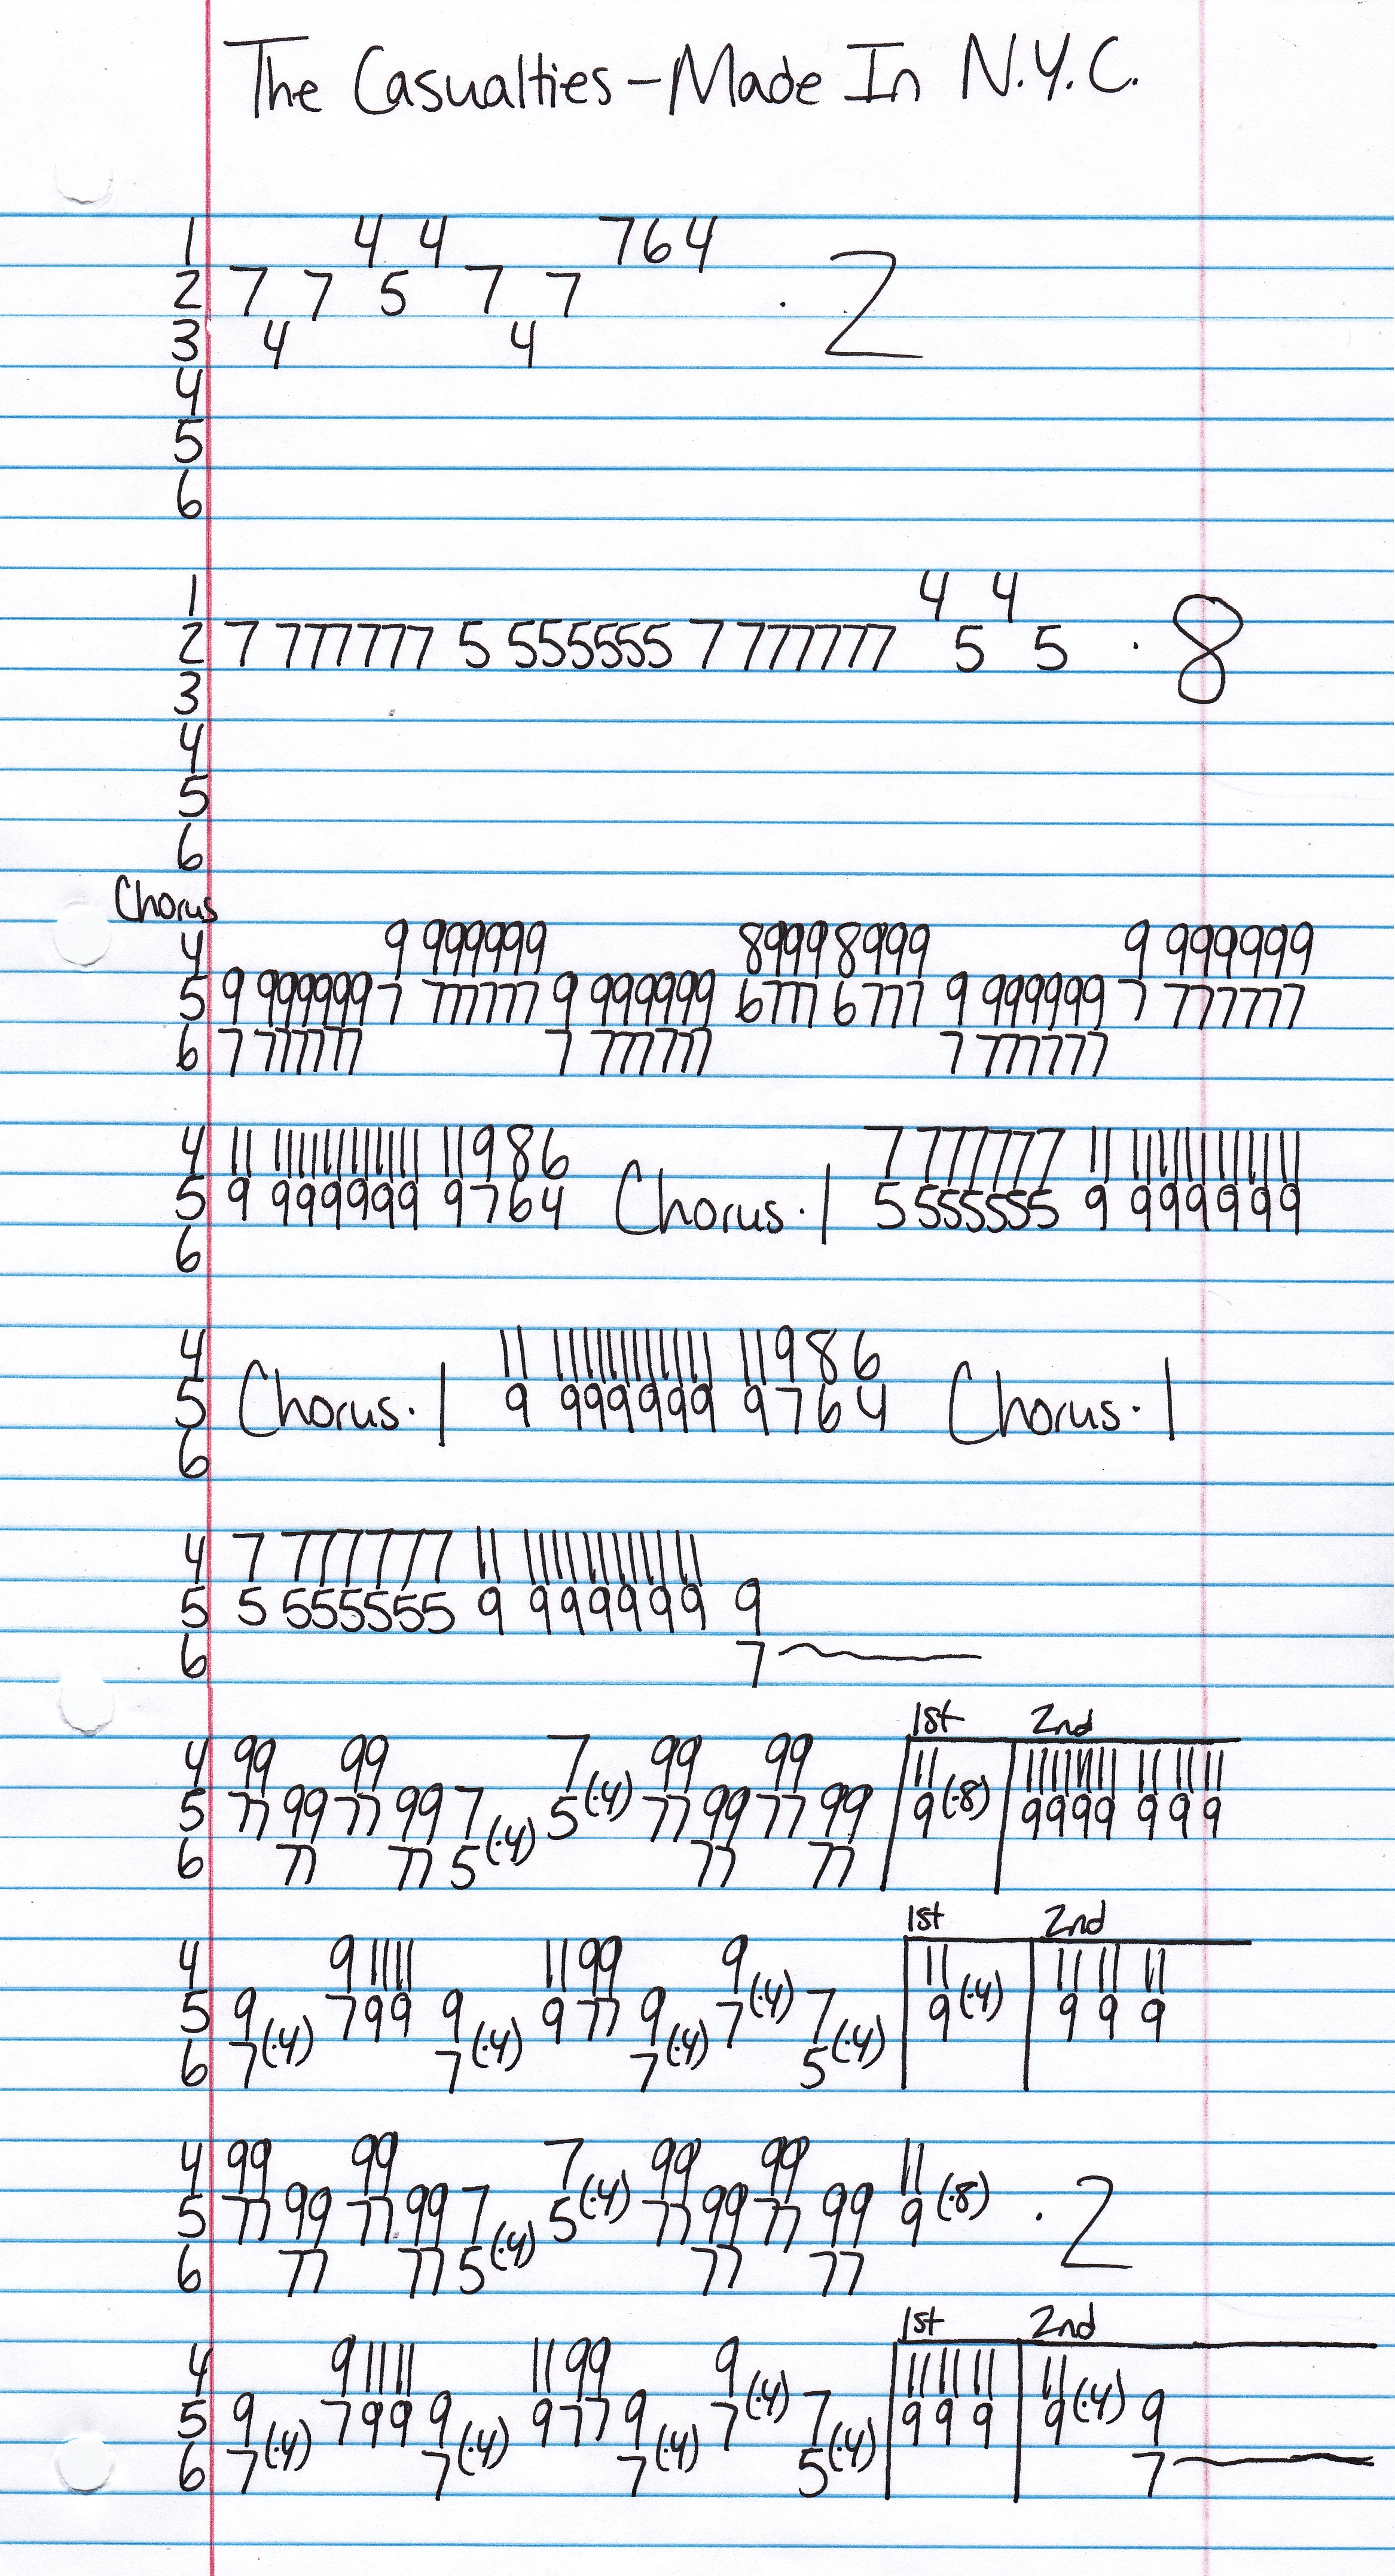 The Casualties - Made In N.Y.C.
1 4 4 764
2 7 7 5 7 7 · 2
3 4 4
4
5
6
1 4 4
2 7 777777 5 555555 7 777777 5 5 · 8
3
4
5
6
Chorus
4 9 999999 89998999 9 999999
5 9 999999 7 777777 9 999999 6777 6777 9 999999 7 777777
6 7 777777 7 777777 7 777777
4 11 111111111111 11 9 8 6 7 777777 11 111111111111
5 9 999999 9 7 6 4 Chorus · 1 5 555555 9 999999
6
4 11 111111111111 11 9 8 6
5 Chorus · 1 9 999999 9 7 6 4 Chorus · 1
6
4 7 777777 11 111111111111
5 5 555555 9 999999 9
6 7
1st 2nd
4 99 99 7 99 99 11 11111111 11 11 11
5 77 99 77 99 7 5(·4) 77 99 77 99 9(·8) 9999 9 9 9
6 77 77 5(·4) 77 77
1st 2nd
4 9 11 11 11 99 9 11 11 11 11
5 9 7 9 9 9 9 77 9 7(·4) 7 9(·4) 9 9 9
6 7(·4) 7(·4) 7(·4) 5(·4)
4 99 99 7 99 99 11
5 77 99 77 99 7 5(·4) 77 99 77 99 9(·8) · 2
6 77 77 5(·4) 77 77
1st 2nd
4 9 11 11 11 99 9 11 11 11 11
5 9 7 9 9 9 9 77 9 7(·4) 7 9 9 9 9(·4) 9
6 7(·4) 7(·4) 7(·4) 5(·4) 7